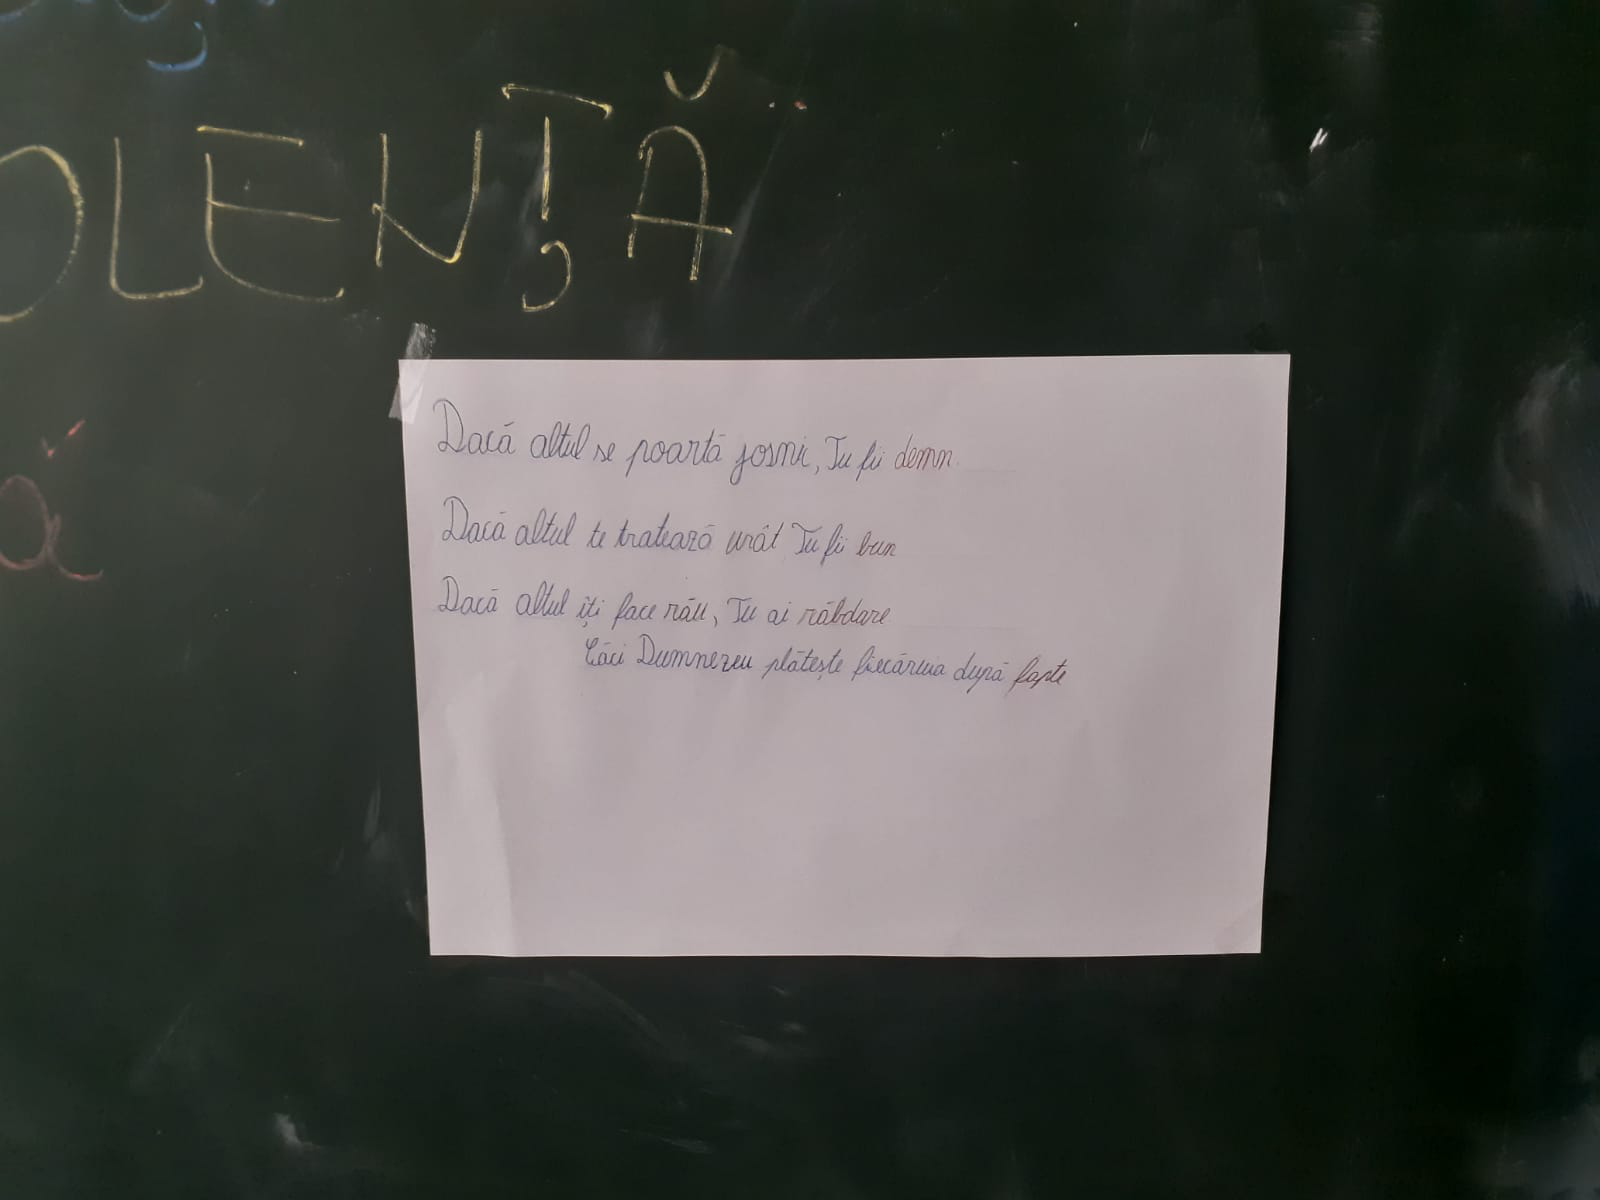 OLENȚĂ
Dacă altul se poartă josnic, Tu fii demn.
Dacă altul te tratează urât Tu fii bun
Dacă altul îți face rău, Tu ai răbdare
Căci Dumnezeu plătește fiecăruia după fapte